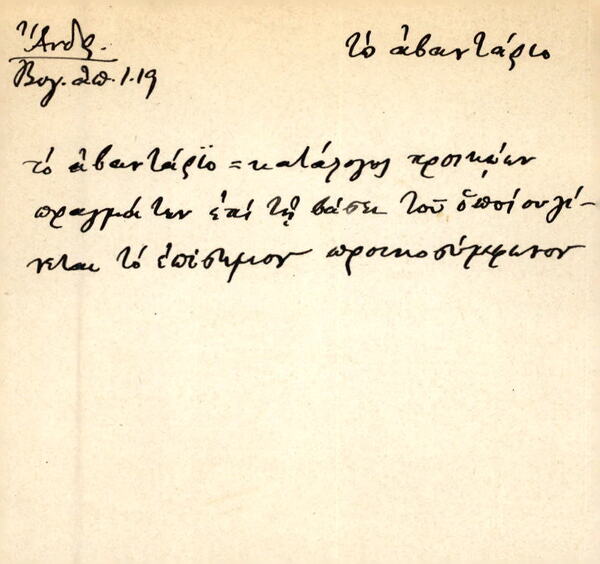 Ἄνδρ.
τὸ ἀβαντάριο
Βογ. απ. 1.19
τὸ ἀβαντάριο = κατάλογος προικῴων
πραγμάτων ἐπὶ τῇ βάσει τοῦ ὁποίου γί-
νεται τὸ ἐπίσημον προικοσύμφωνον